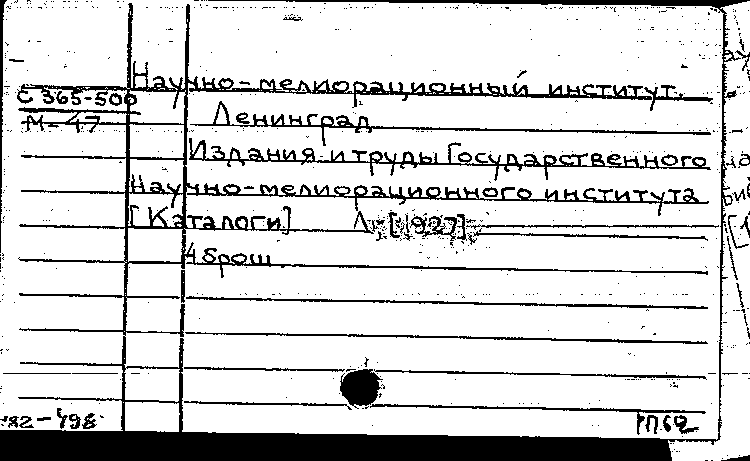 Научно-мелиорационный институт.
С 365-500
М-47
Ленинград
Издания и труды Государственного
Научно-мелиорационного института
[Каталоги] Л, [1927]
4 брош
82-498